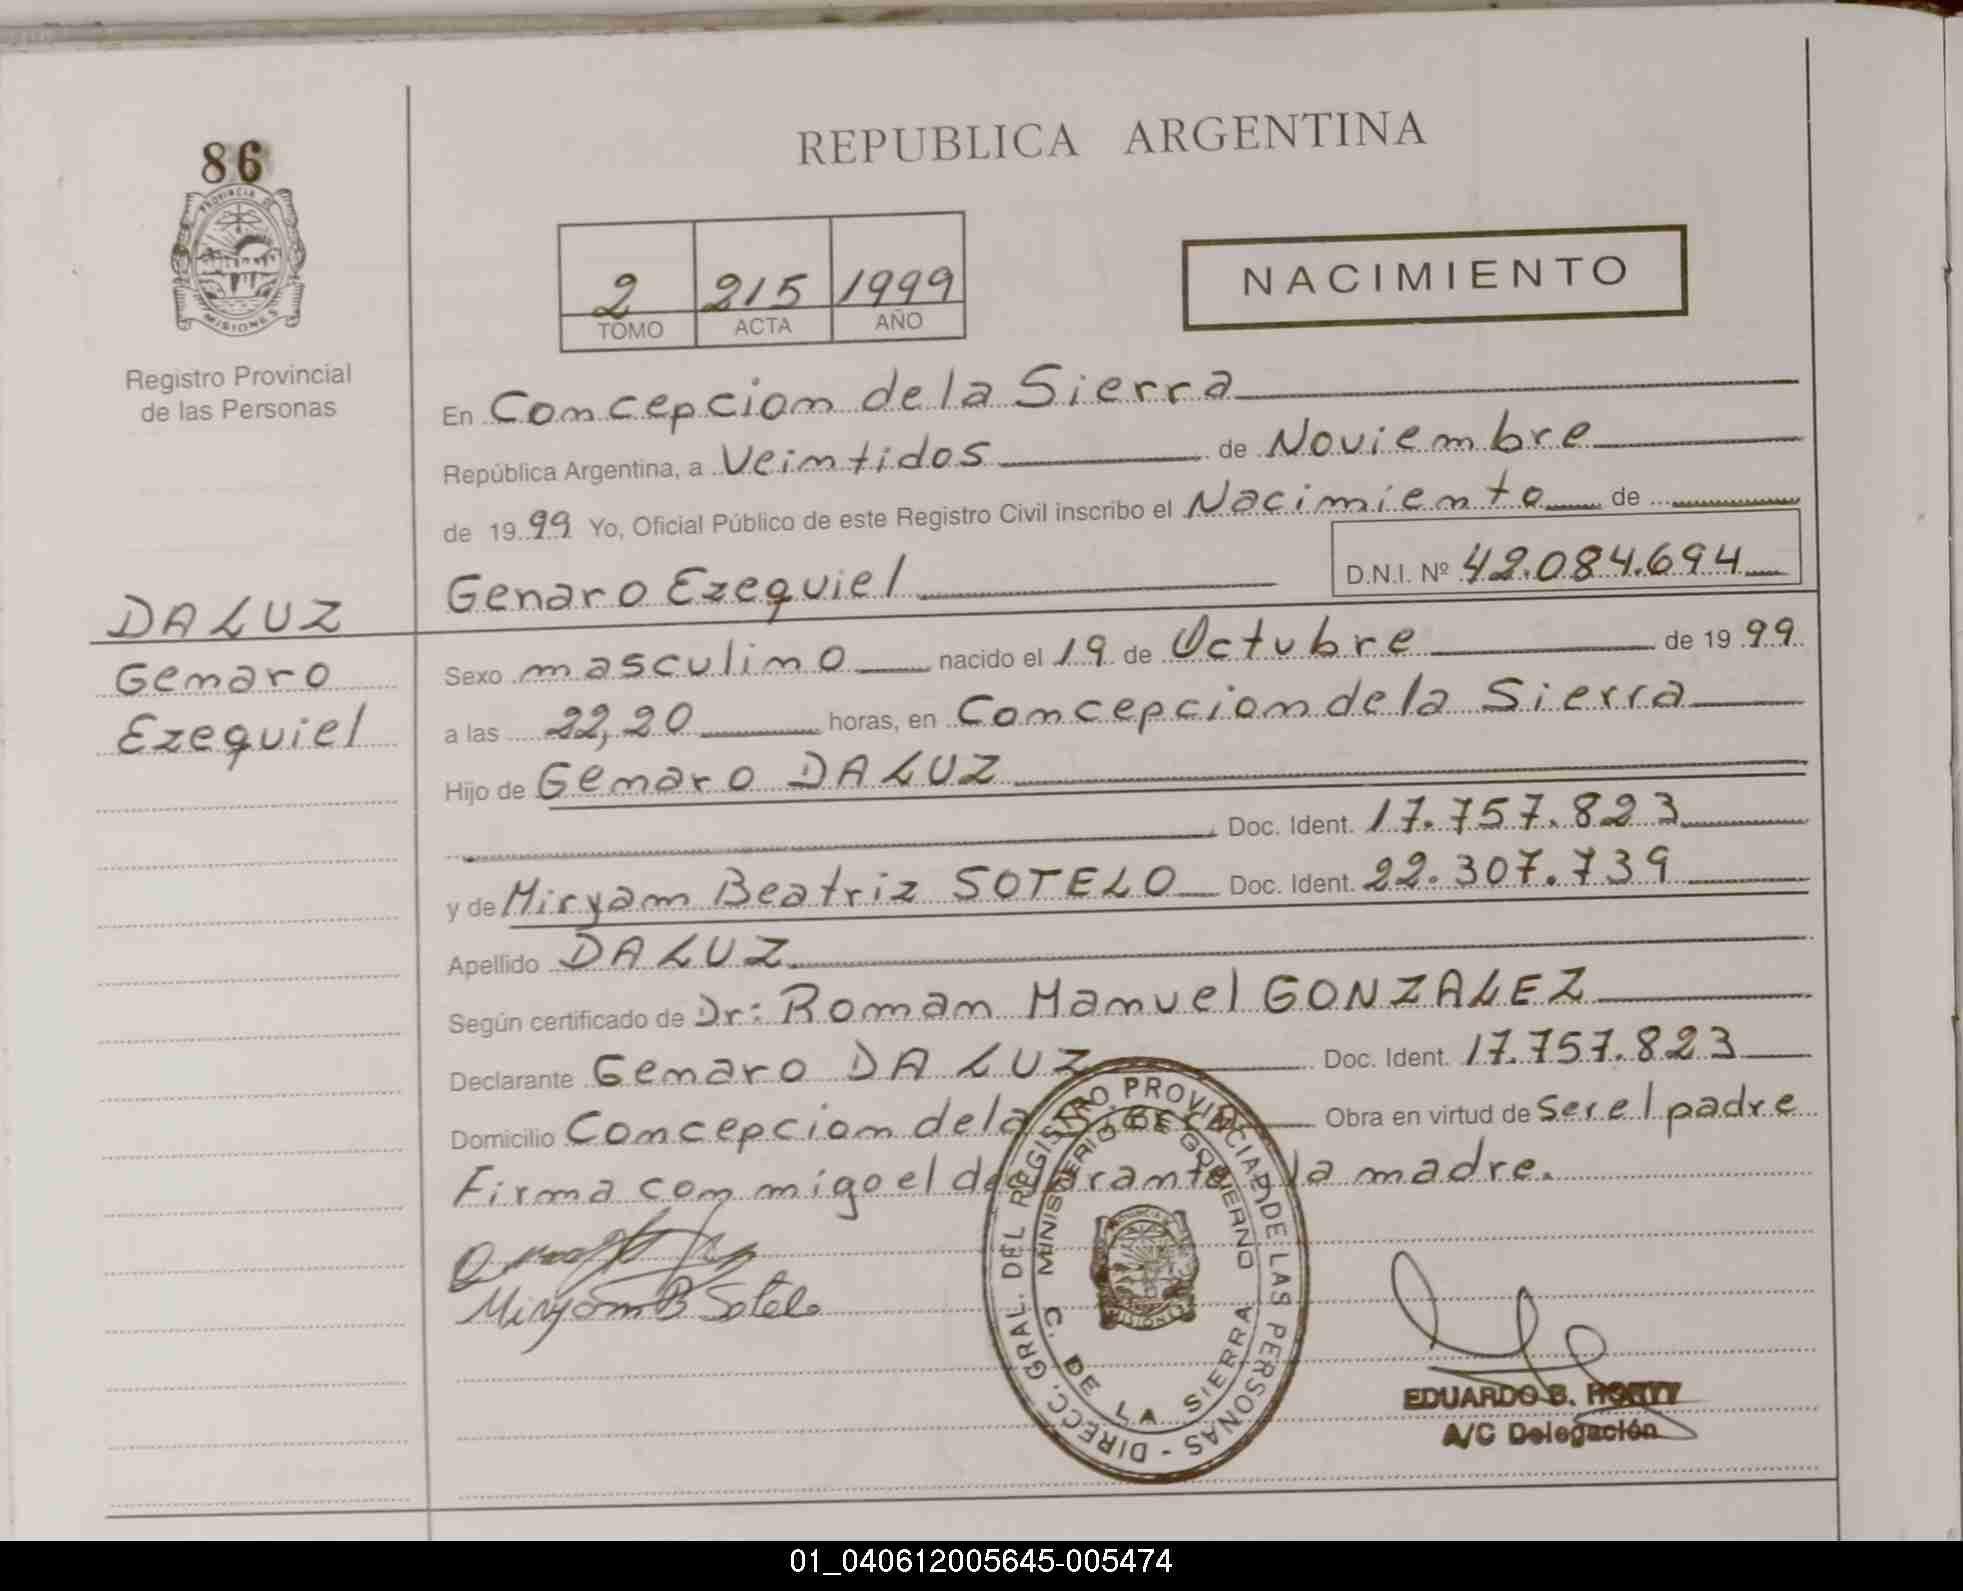 86
PROVINCIA DE
MISIONES
Registro Provincial
de las Personas
DA LUZ
Genaro
Ezequiel
REPUBLICA ARGENTINA
2 215 1999
TOMO ACTA AÑO
NACIMIENTO
En Concepcion de la Sierra
República Argentina, a Veintidos de Noviembre
de 1999 Yo, Oficial Público de este Registro Civil inscribo el Nacimiento de
Genaro Ezequiel D.N.I. Nº 42.084.694
Sexo masculino nacido el 19 de Octubre de 1999
a las 22,20 horas, en Concepcion de la Sierra
Hijo de Genaro DA LUZ
Doc. Ident. 17.757.823
y de Miryam Beatriz SOTELO Doc. Ident. 22.307.739
Apellido DA LUZ
Según certificado de Dr: Roman Manuel GONZALEZ
Declarante Genaro DA LUZ Doc. Ident. 17.757.823
Domicilio Concepcion de la Sierra Obra en virtud de Ser el padre
Firma conmigo el declarante y la madre.
Miryam B Sotelo
DIRECC. GRAL. DEL REGISTRO PROVINCIAL DE LAS PERSONAS -
MINISTERIO DE GOBIERNO
C. DE LA SIERRA
PROVINCIA DE
MISIONES
EDUARDO B.
A/C Delegación
01_040612005645-005474